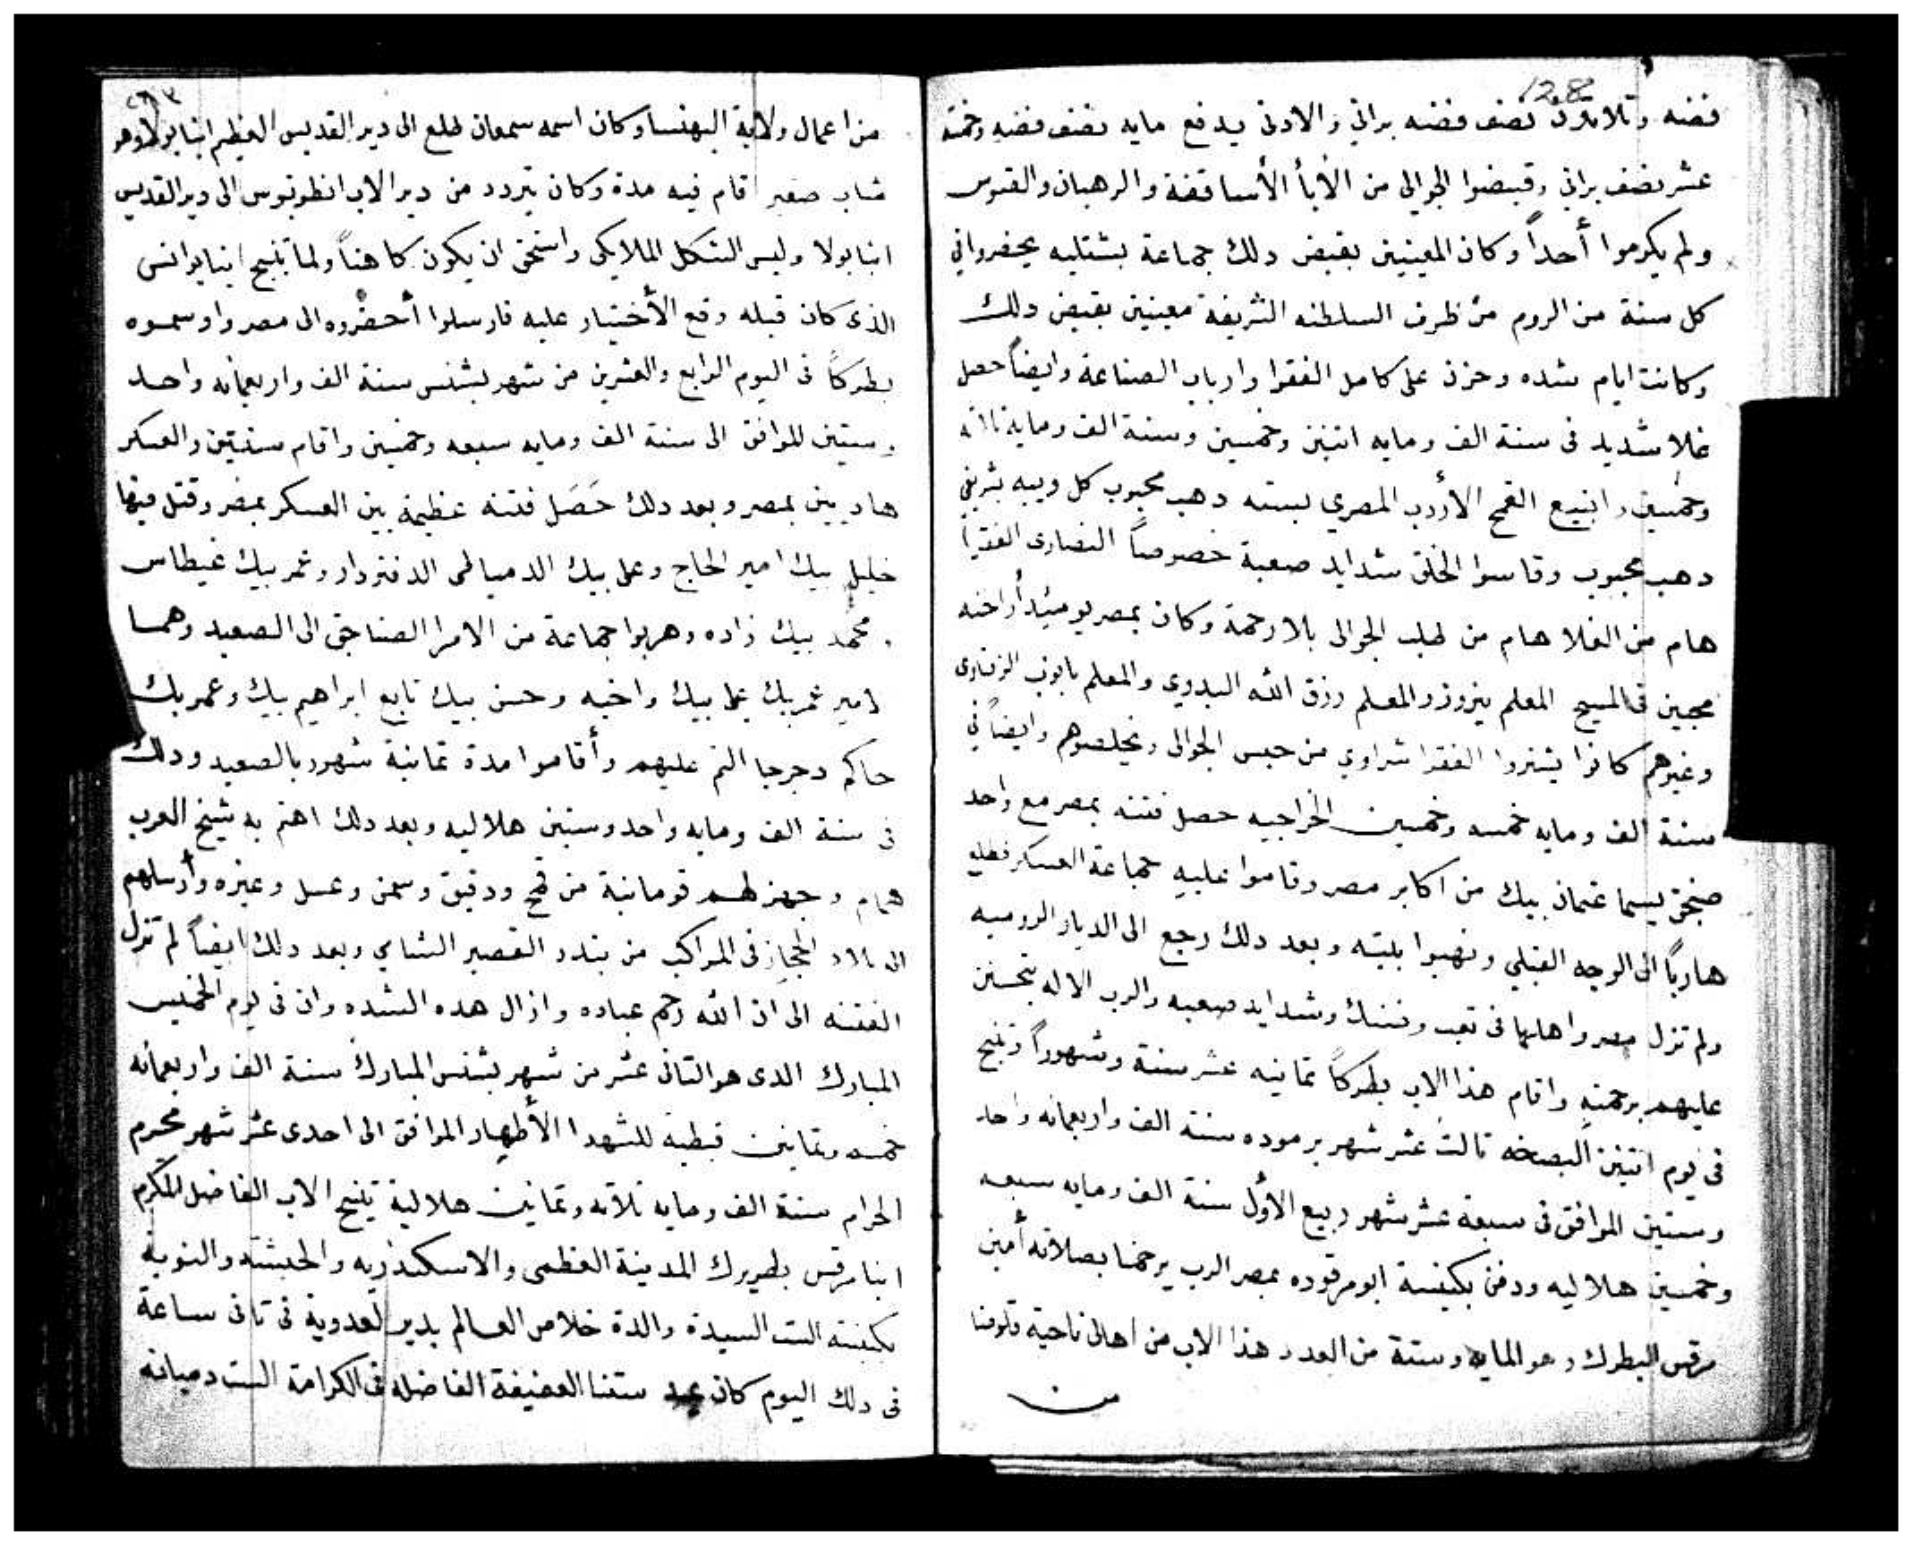 128
فضه وتلاتون نصف فضه براني والادنى يدفع مايه نصف فضه وخمسة
عشر نصف براني وقبضوا الجوالي من الأبأ الأساقفة والرهبان والقسوس
ولم يكرموا أحداً وكان المعينين بقبض دلك جماعة بشتليه يحضرواني
كل سنة من الروم من طرف السلطنه الشريفة معينين بقبض دلك
وكانت ايام شده وحزن على كامل الفقرا وارباب الصناعة وايضاً حصل
غلا شديد فى سنة الف ومايه اتنين وخمسين وسنة الف ومايه تلاته
وخمسين وانبيع القمح الأردب المصري بسته دهب محبوب كل ويبه بشريفي
دهب محبوب وقاسوا الخلق شدايد صعبة خصوصاً النصارى الفقرا
هام من الغلا هام من طلب الجوالى بلا رحمة وكان بمصر يوميئد أراخنه
محبين فى المسيح المعلم نيروز والمعلم رزق الله البدوي والمعلم بانوب الزفتاوى
وغيرهم كانوا يشتروا الفقرا شراوي من حبس الجوالى ويخلصوهم وايضاً في
سنة الف ومايه خمسه وخمسين الخراجيه حصل فتنه بمصر مع واحد
صنجق يسما عتمان بيك من اكابر مصر وقاموا عليه جماعة العسكر فطلع
هارباً الى الوجه القبلي ونهبوا بيته وبعد دلك رجع الى الديار الروميه
ولم تزل مصر واهاليها فى تعب وضنك وشدايد صعبه والرب الاله يتحنن
عليهم برحمته واقام هذا الاب بطركاً تمانيه عشر سنة وشهوراً وتنيح
فى يوم اتنين البصخه تالت عشر شهر برموده سنة الف واربعمائه واحد
وستين الموافق فى سبعة عشر شهر ربيع الأول سنة الف ومايه سبعه
وخمسين هلاليه ودفن بكنيسة ابو مرقوره بمصر الرب يرحمنا بصلاته أمين
مرقس البطرك وهو المايه وستة من العدد هذا الاب من اهالى ناحية قلوصنا
من
من اعمال ولاية البهنسا وكان اسمه سمعان طلع الى دير القديس العظيم انبا بولا وهو
شاب صغير اقام فيه مدة وكان يتردد من دير الاب انطونيوس الى دير القديس
انبا بولا ولبس الشكل الملايكى واستحق ان يكون كاهناً ولما تنيح انبا يوانس
الذى كان قبله وقع الأختيار عليه فارسلوا أحضروه الى مصر واوسموه
بطركاً فى اليوم الرابع والعشرين من شهر بشنس سنة الف واربعمائه واحد
وستين الموافق الى سنة الف ومايه سبعه وخمسين واقام سنتين والعسكر
هاديين بمصر وبعد دلك حَصَل فتنه عظيمة بين العسكر بمصر وقتل فيها
خليل بيك امير الحاج وعلى بيك الدمياطى الدفتردار وعمر بيك غيطاس
ومحمد بيك زاده وهربوا جماعة من الامرا الصناجق الى الصعيد وهما
لامير عمر بيك على بيك واخيه وحسن بيك تابع ابراهيم بيك وعمر بك
حاكم دجرجا التم عليهم وأقاموا مدة تمانية شهور بالصعيد ودلك
فى سنة الف ومايه واحد وستين هلاليه وبعد دلك اهتم به شيخ العرب
همام وجهز لهم قومانية من قمح ودقيق وسمن وعسل وغيره وأرسلهم
الى بلاد الحجاز فى المراكب من بندر القصير الشامي وبعد دلك ايضاً لم تزل
الفتنه الى ان الله رحم عباده وازال هده الشده وان فى يوم الخميس
المبارك الدى هو التانى عشر من شهر بشنس المبارك سنة الف واربعمائه
خمسه وتمانين قبطيه للشهدا الأطهار الموافق الى احدى عشر شهر محرم
الحرام سنة الف ومايه تلاته وتمانين هلالية تنيح الاب الفاضل المكرم
انبا مرقس بطريرك المدينة العظمى والاسكندريه والحبشه والنوبة
بكنيسه الست السيدة والدة خلاص العالم بدير العدوية فى تانى ساعة
فى دلك اليوم كان عيد ستنا العفيفة الفاضله فى الكرامة الست دميانه